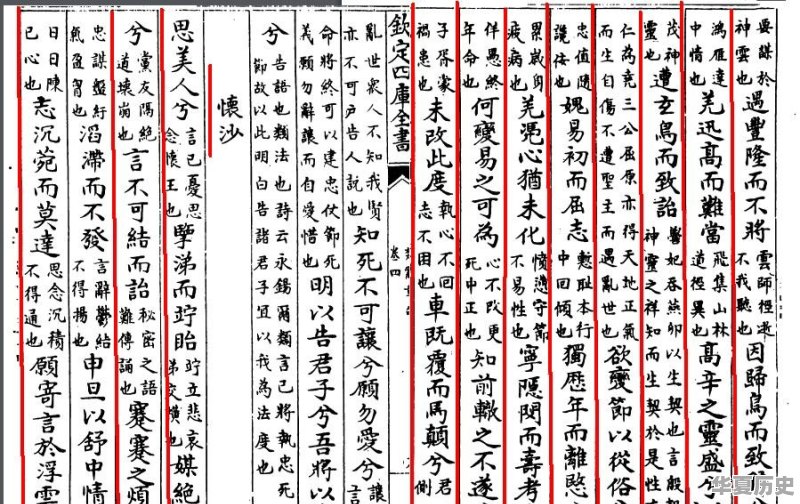 要謀於神雲也過豐隆而不將雲師徑遊不我聽也因歸鳥而致
鴻雁達中情也羌迅高而難當飛集山林道徑異也高辛之靈盛
茂神靈也遭玄鳥而致詒嚳妃吞燕卵以生契也言殷契神靈之祥知而生契於是性
仁為堯三公屈原亦得天地正氣而生自傷不遭聖主而遇亂世也欲變節以從俗
忠值隨讒佞也媿易初而屈志慙耻本行中回傾也獨歷年而離愍
累歲身疲病也羌憑心猶未化憤懣守節不易性也寧隱閔而壽考
佯愚終年命也何變易之可為心不改更死中正也知前轍之不遂
子胥蒙禍患也未改此度執心不回志不困也車既覆而馬顛兮君側
欽定四庫全書
卷四
亂世衆人不知我賢亦不可户告人說也知死不可讓兮願勿愛兮讓言
命將終可以建忠仗節死義願勿辭讓而自愛惜也明以告君子兮吾將以
兮告語也類法也詩云永錫爾類言己將執忠死節故以此明白告諸君子宜以我為法度也
懷沙
思美人兮言己憂思念懷王也擥涕而竚眙竚立悲哀涕交橫也媒絶
兮黨友隔絶道壞崩也言不可結而詒秘密之語難傳誦也蹇蹇之煩
忠謀盤紆氣盈胷也滔滯而不發言辭鬱結不得揚也申旦以舒中情
日日陳己心也志沉菀而莫達思念沉積不得通也願寄言於浮雲
华夏历史